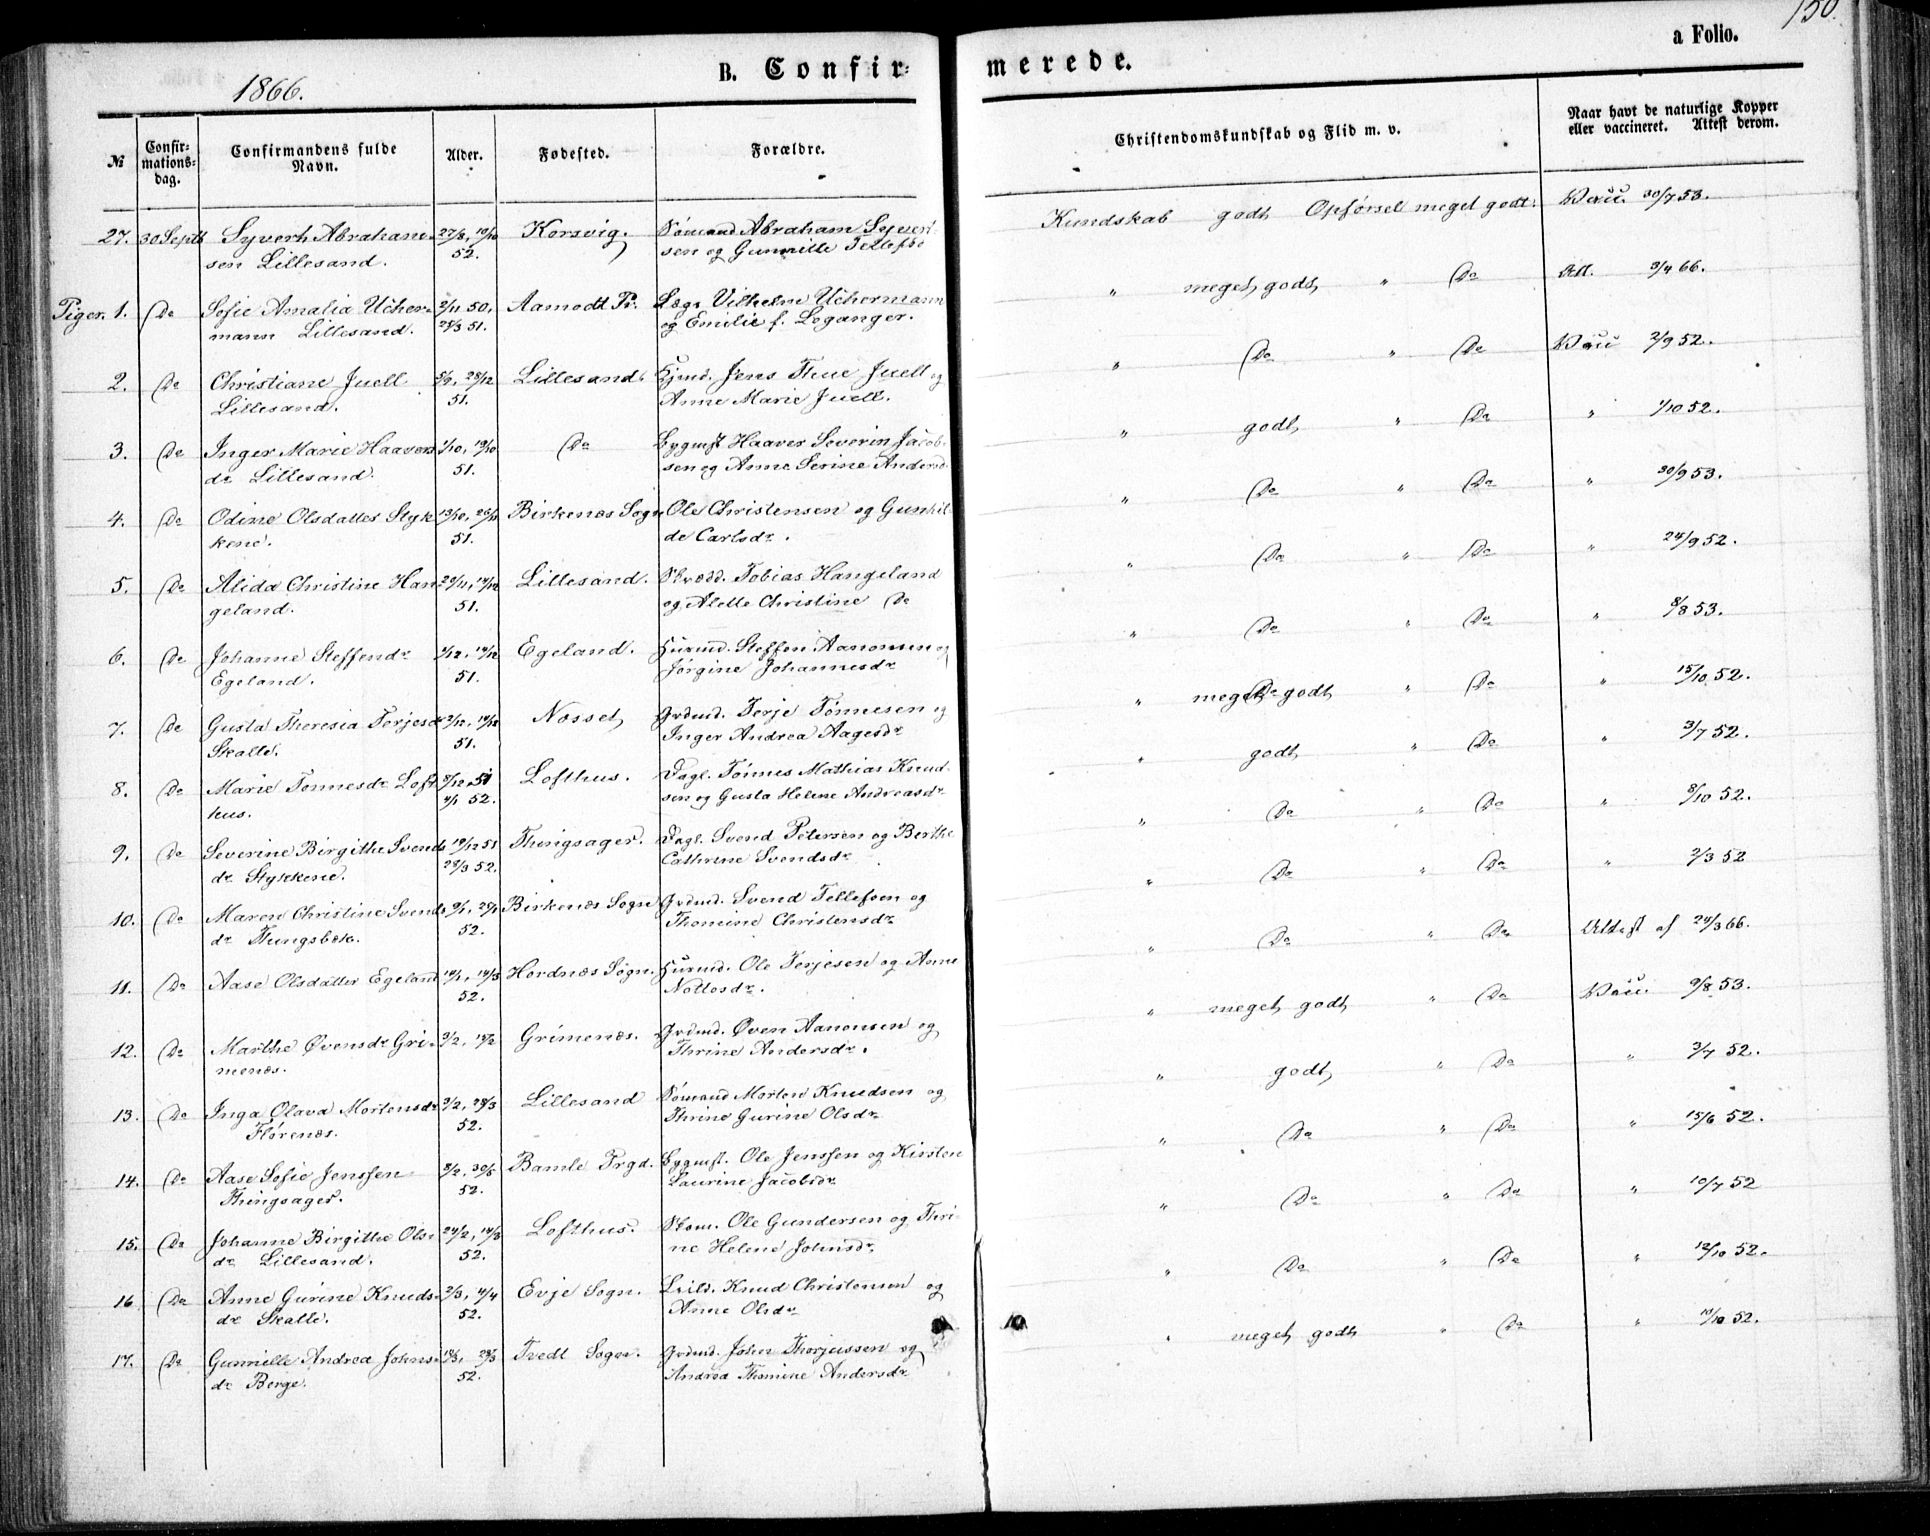 150.
a Folio.
1866.
B. Confir= merede.
№ Confir-mations-dag. Confirmandens fulde Navn. Alder. Fødested. Forældre. Christendomskundskab og Flid m. v. Naar havt de naturlige Kopper eller vaccineret. Attest derom.
27. 30 Septb Syvert Abraham- 27/8, 10/10 Korsvig. Sømand Abraham Syvert- Kundskab godt Opførsel meget godt. Vacc. 30/7 53.
sen Lillesand. 52. sen og Gunnille Tellefsd
Piger. 1. Do Sofie Amalia Ucher- 2/11 50, Aamodt Pr. Læge Vilhelm Uchermann " meget godt " Do Att. 3/4 66.
mann Lillesand. 28/3 51. og Emilie f. Leganger.
2. Do Christiane Juell 5/9, 28/12 Lillesand. Kjmd. Jens Thue Juell og " Do " Do Vacc 2/9 52.
Lillesand. 51. Anne Marie Juell.
3. Do Inger Marie Haavers 1/10, 19/10 Do Bygmst Haaver Severin Jacob- " godt " Do " 1/10 52.
dr Lillesand. 51. sen og Anne Serine Andersd.
4. Do Odine Olsdatter Styk 13/10, 26/12 Birkenæs Sogn Ole Christensen og Gunhil " Do " Do " 30/9 53.
kene. 51. de Carlsdr.
5. Do Alida Christine Han 22/11, 14/12 Lillesand. Skrædd. Tobias Hangeland " Do " Do " 24/9 52.
geland. 51. og Alette Christine Do
6. Do Johanne Steffendr 1/12, 14/12 Egeland. Husmd. Steffen Aanonsen og " Do " Do " 8/8 53.
Egeland. 51. Jørgine Johannesdr
7. Do Gusta Theresia Terjesdr 3/12, 14/12 Nosset, Grdmd. Terje Tønnesen og " meget godt " Do " 15/10 52.
Skalle. 51. Inger Andrea Aagesdr
8. Do Marie Tønnesdr Loft 8/12 51 Lofthus. Dagl. Tønnes Mathias Knud- " godt " Do " 3/7 52.
hus. 4/1 52. sen og Gusta Helene Andreasdr
9. Do Severine Birgithe Svends 19/12 51 Thingsager. Dagl. Svend Petersen og Berthe " Do " Do " 8/10 52.
dr Stykkene. 28/3 52. Cathrine Svendsdr
10. Do Maren Christine Svends 9/1, 25/1 Birkenæs Sogn Grdmd. Svend Tellefsen og " Do " Do " 2/3 52
dr Tungsbæk. 52. Thomine Christensdr
11. Do Aase Olsdatter Egeland 14/1, 14/3 Hordnæs Sogn. Husmd. Ole Terjesen og Anne " Do " Do Attest af 24/3 66.
52. Nottosdr.
12. Do Marthe Øvensdr Gri- 3/2, 15/2 Grimenæs. Grdmd. Øven Aanonsen og " meget godt " Do Vacc. 9/8 53.
menæs. Thrine Andersdr.
13. Do Inga Olava Mortensdr 3/2, 28/3 Lillesand Sømand Morten Knudsen og " godt " Do " 3/7 52.
Flørenæs. 52. Thrine Gurine Olsdr
14. Do Aase Sofie Jenssen 8/2, 30/5 Bamle Prgd. Bygmst. Ole Jenssen og Kirsten " Do " Do " 15/6 52.
Thingsager. 52. Laurine Jacobsdr
15. Do Johanne Birgithe Ols- 24/2, 14/3 Lofthus. Skom. Ole Gundersen og Thri- " Do " Do " 10/7 52
dr Lillesand. 52. ne Helene Johnsdr
16 Do Anne Gurine Knuds- 2/3, 4/4 Evje Sogn. Leild. Knud Christensen og " Do " Do " 12/10 52.
dr Skalle. 52. Anne Olsdr
17. Do Gunnille Andrea Johns- 18/3, 28/3 Tvedt Sogn. Grdmd. John Thorjussen og " meget godt " Do " 10/10 52.
dr Berge. 52. Andrea Thomine Andersdr